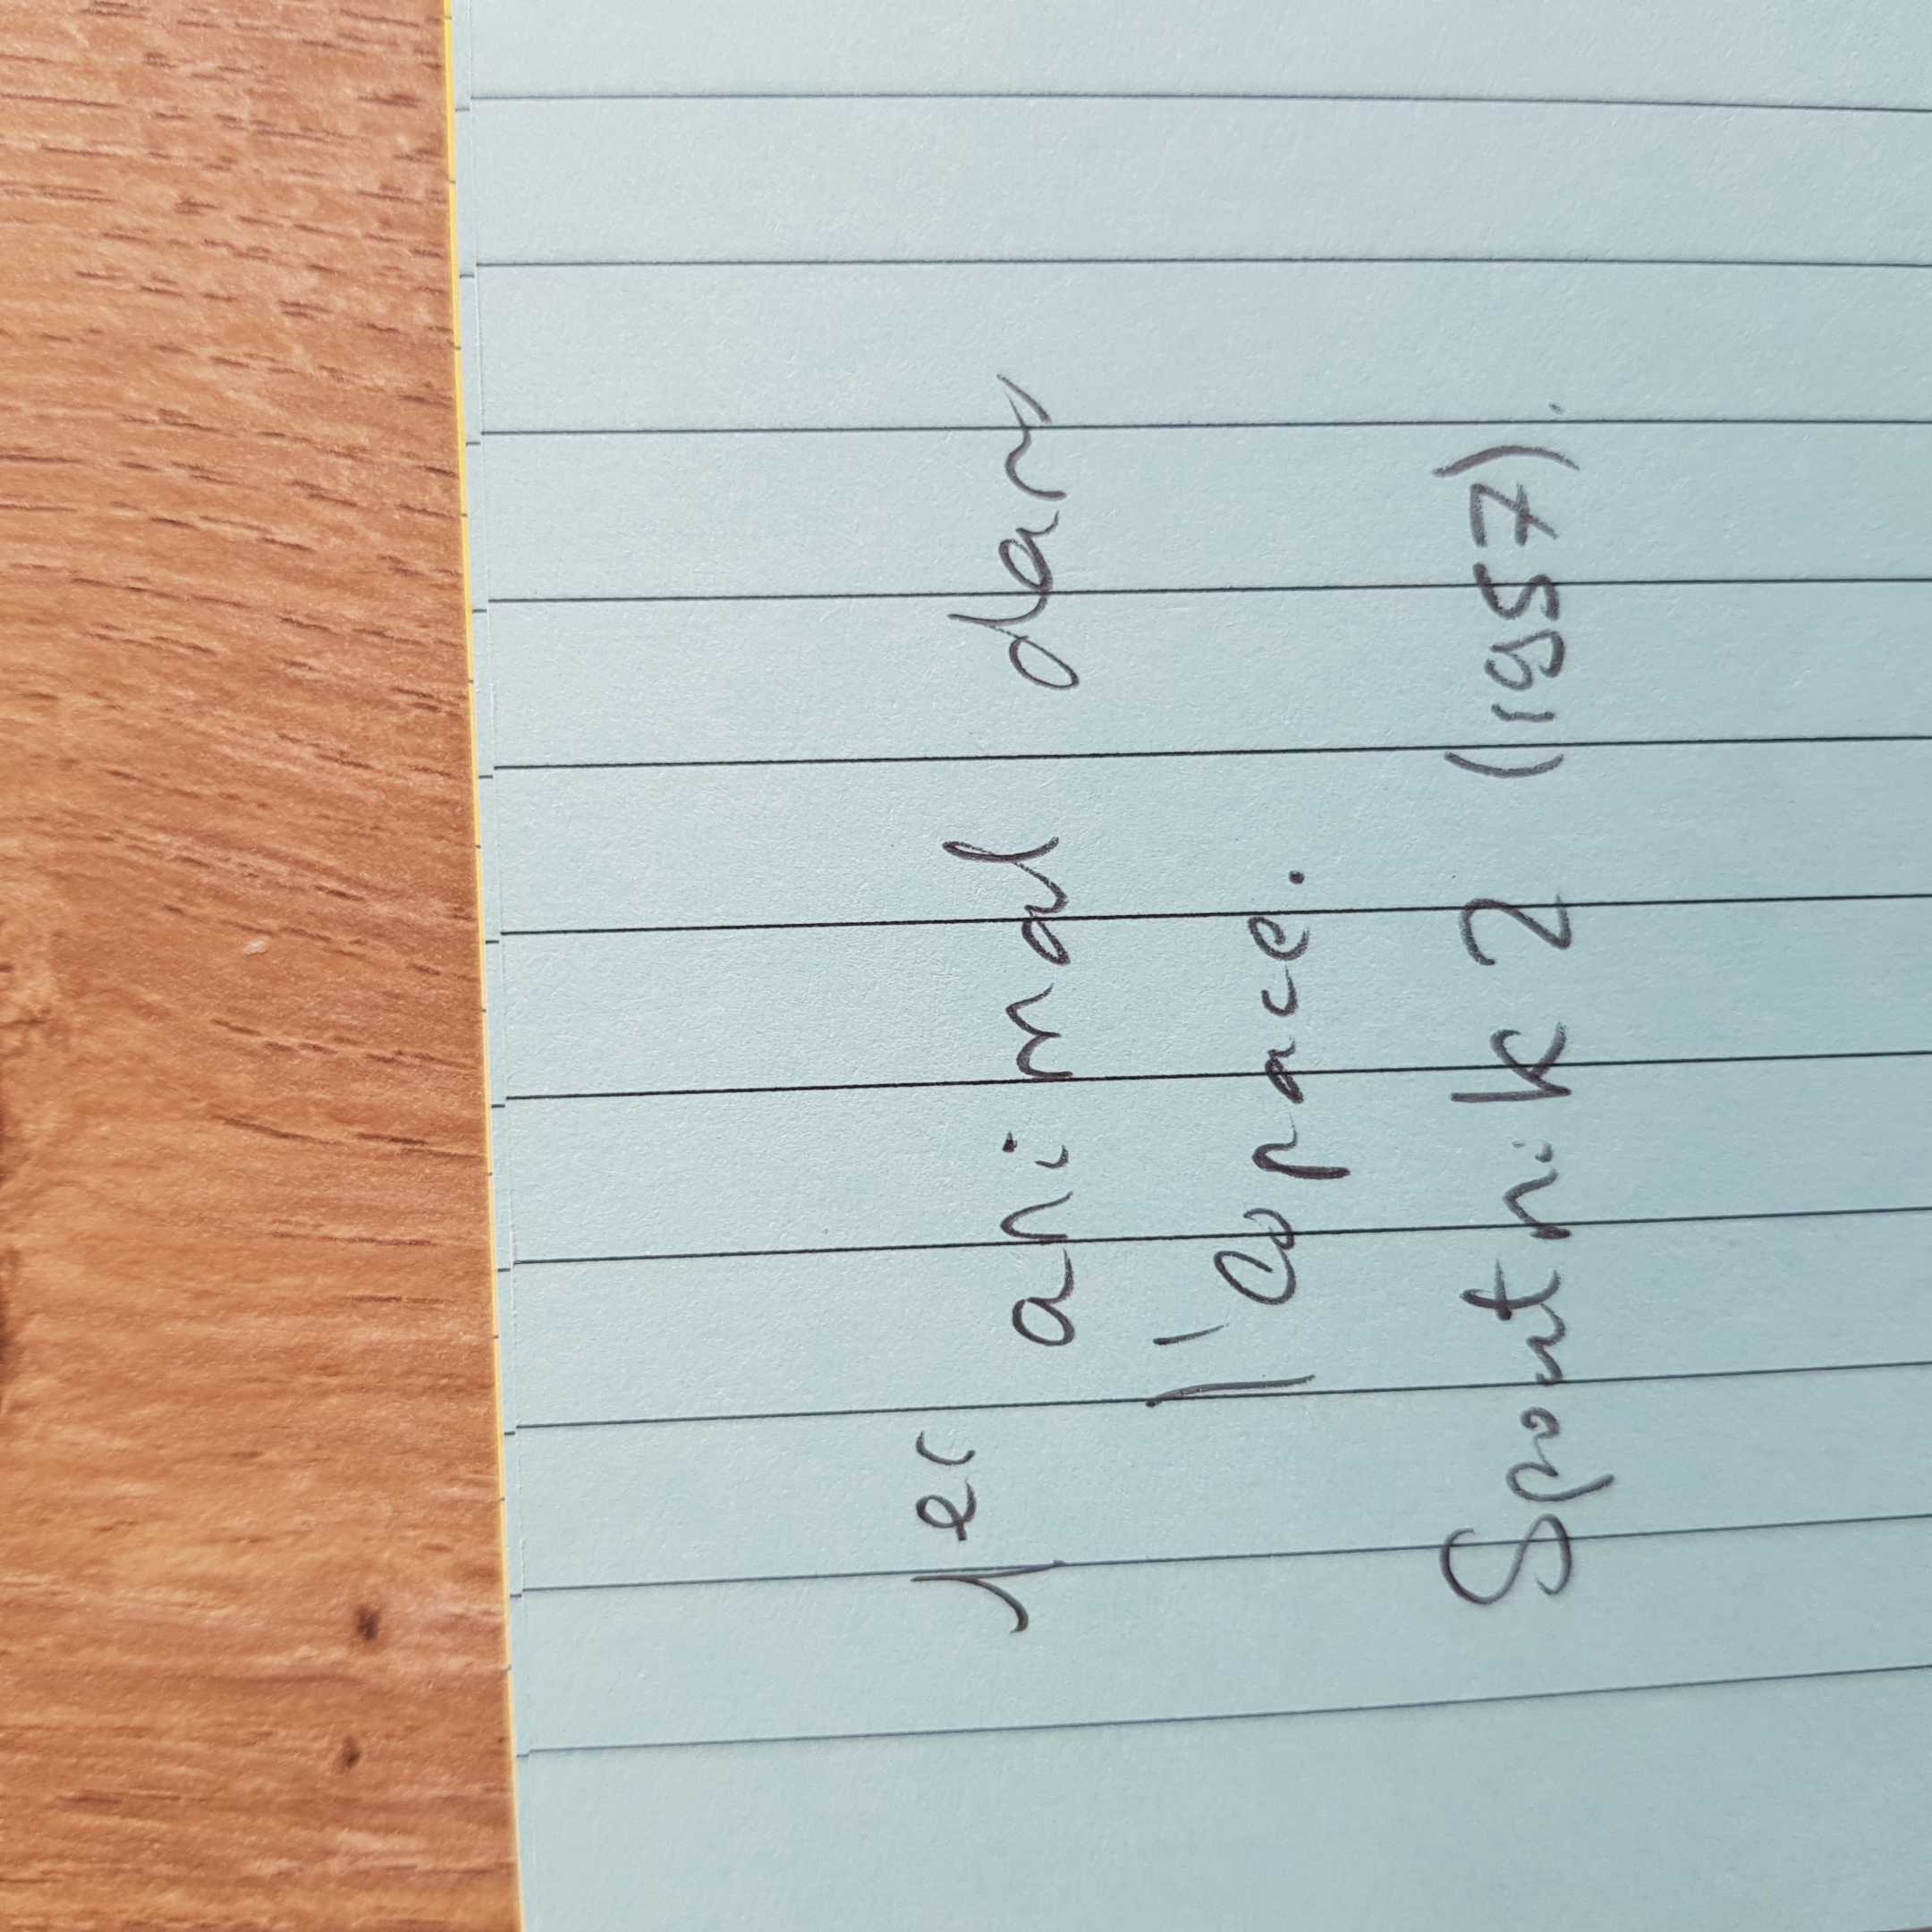 1er animal dans
l'espace.
Spoutnik 2 (1957).